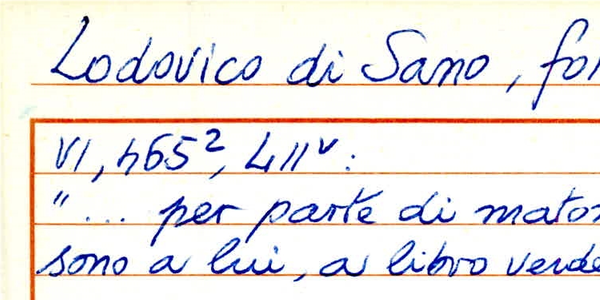 Lodovico di Sano, for
VI, 465², 411ᵛ:
"... per parte di maton
sono a lui, a libro verde